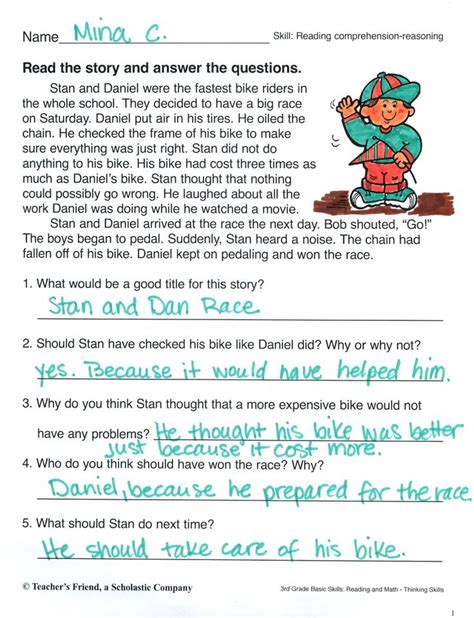 Name Mina C. Skill: Reading comprehension-reasoning
Read the story and answer the questions.
Stan and Daniel were the fastest bike riders in
the whole school. They decided to have a big race
on Saturday. Daniel put air in his tires. He oiled the
chain. He checked the frame of his bike to make
sure everything was just right. Stan did not do
anything to his bike. His bike had cost three times as
much as Daniel's bike. Stan thought that nothing
could possibly go wrong. He laughed about all the
work Daniel was doing while he watched a movie.
Stan and Daniel arrived at the race the next day. Bob shouted, "Go!"
The boys began to pedal. Suddenly, Stan heard a noise. The chain had
fallen off of his bike. Daniel kept on pedaling and won the race.
1. What would be a good title for this story?
Stan and Dan Race
2. Should Stan have checked his bike like Daniel did? Why or why not?
yes. Because it would have helped him.
3. Why do you think Stan thought that a more expensive bike would not
have any problems? He thought his bike was better
just because it cost more.
4. Who do you think should have won the race? Why?
Daniel, because he prepared for the race.
5. What should Stan do next time?
He should take care of his bike.
© Teacher's Friend, a Scholastic Company 3rd Grade Basic Skills: Reading and Math - Thinking Skills
1